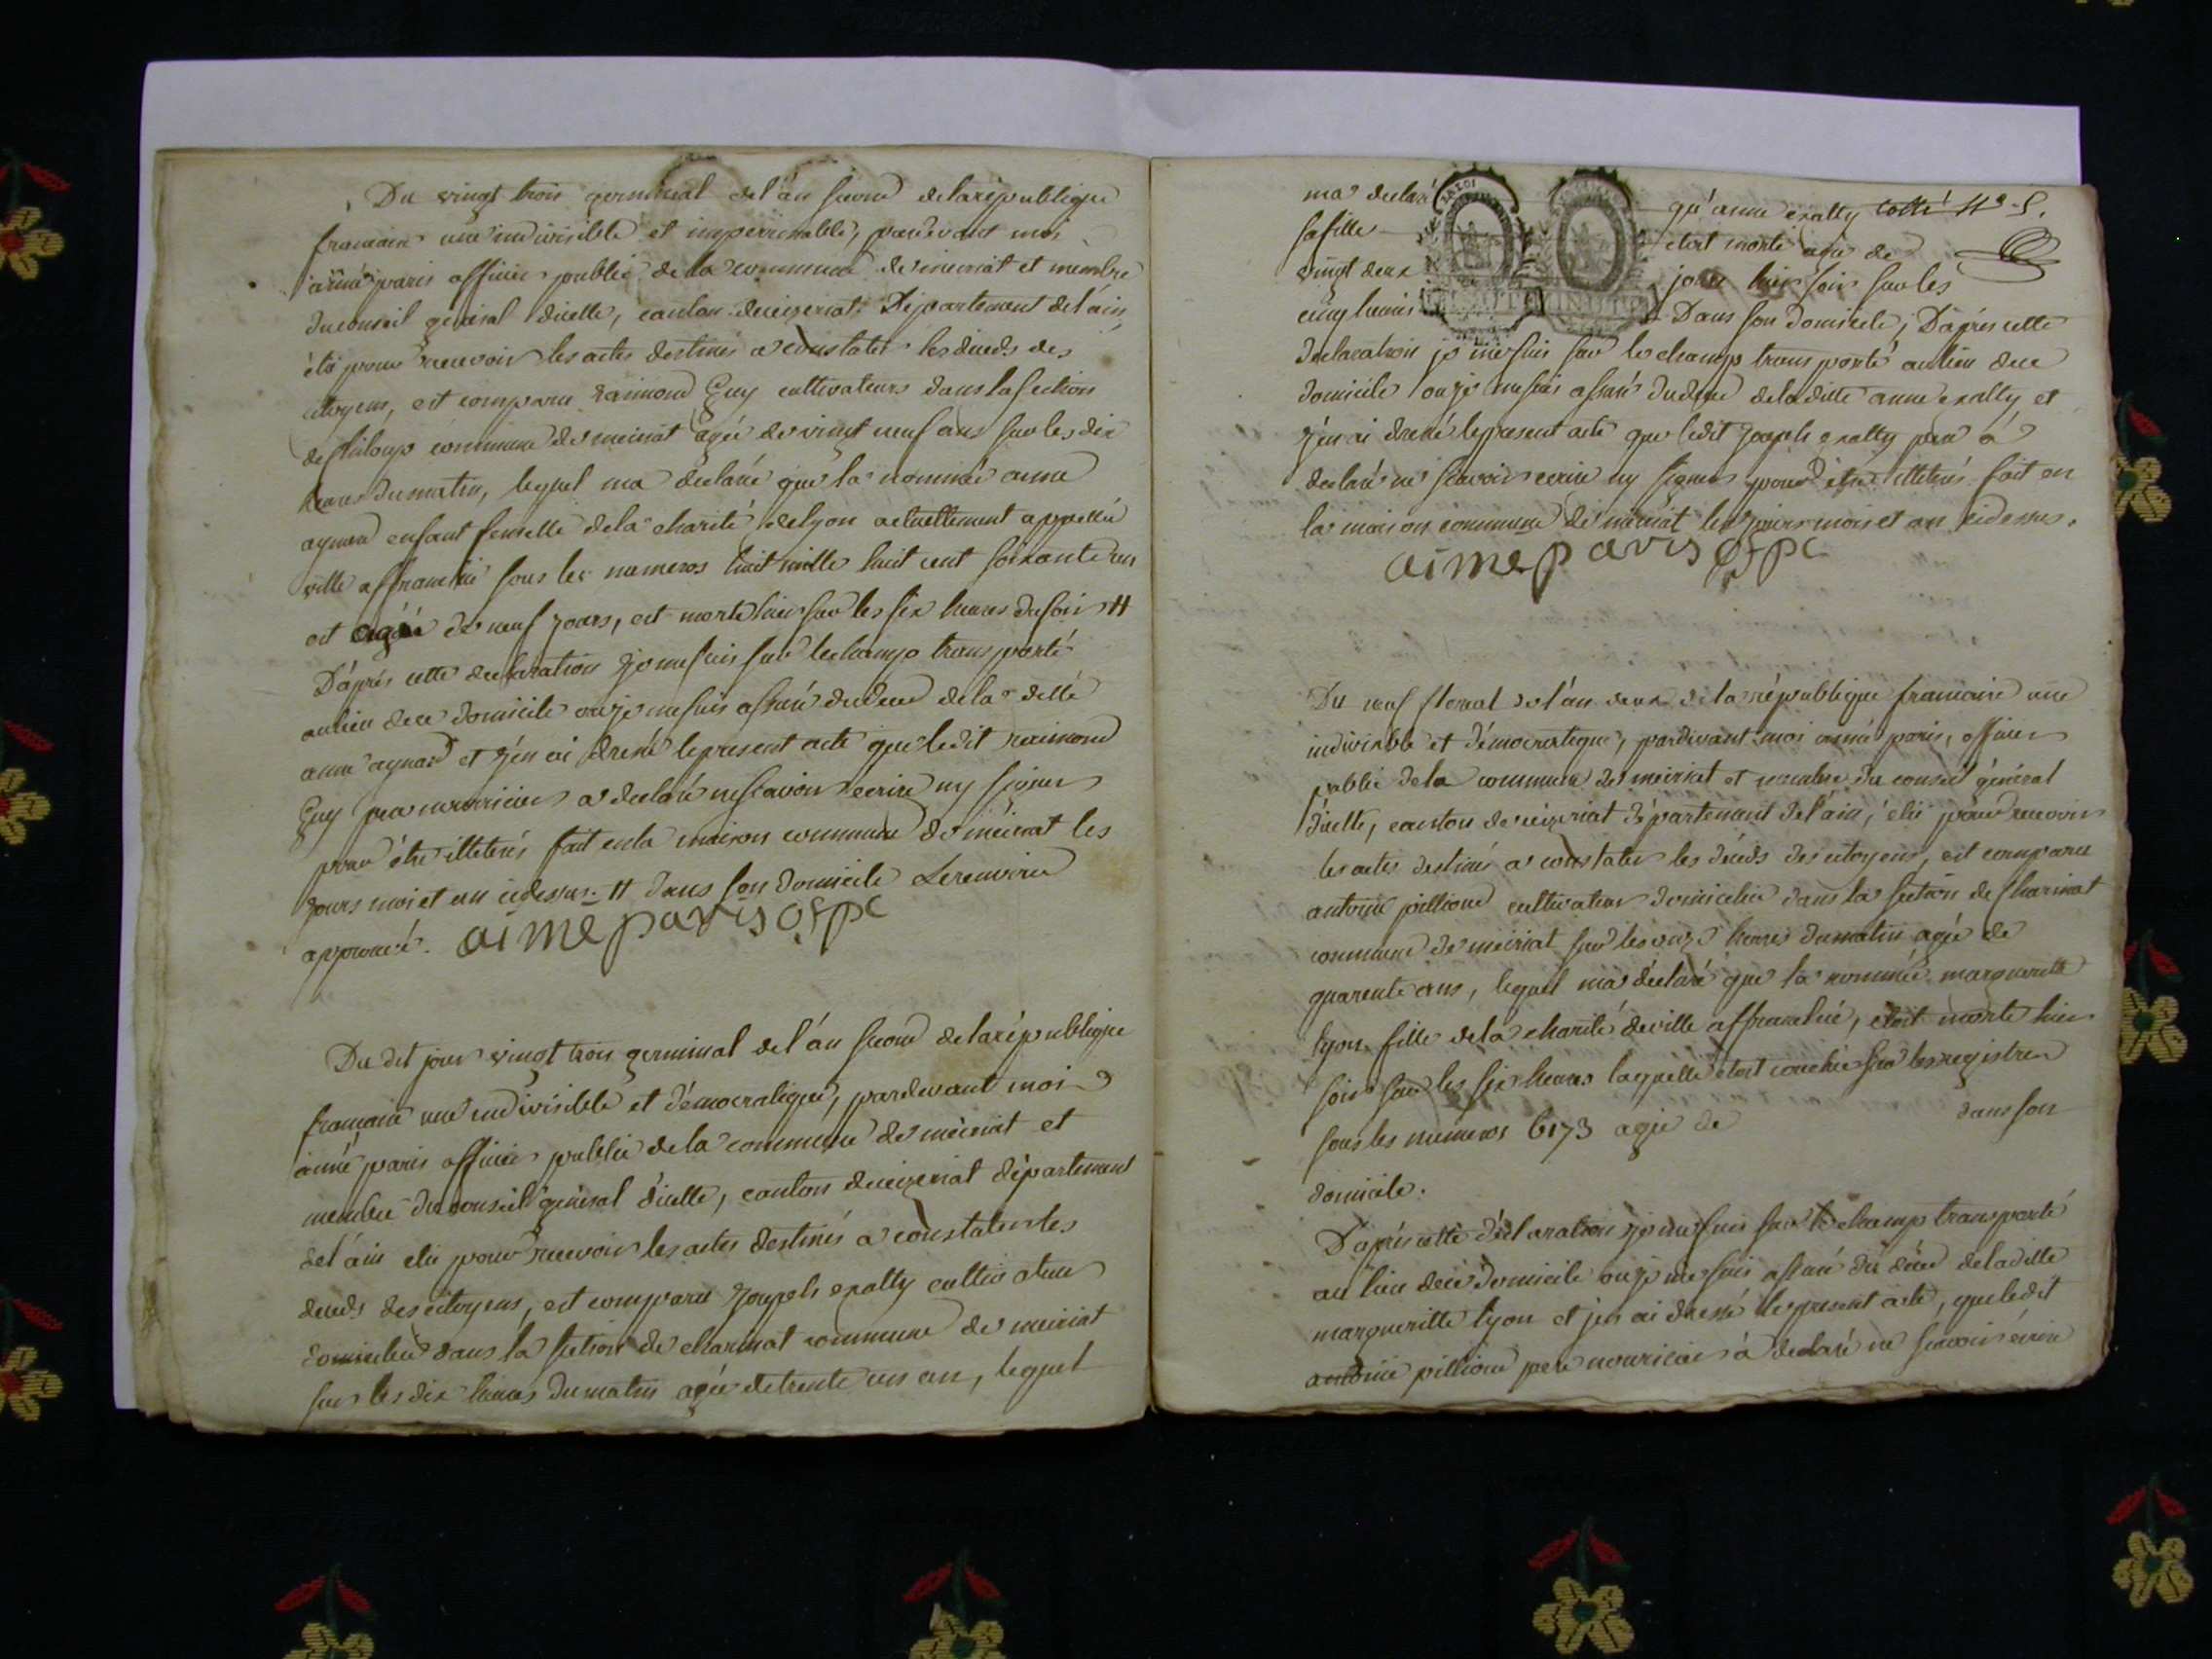 Du vingt trois germinal de l'an second de la république
francaise une indivisible et imperissable, pardevant moi
aimé paris officier public de la commune de meiriat et membre
du conseil general dicelle, canton de ceizeriat Département de l'ain,
élu pour recevoir les actes destinés a constater les dècèds des
citoyens, est comparu raimond Guy cultivateur dans la section
de commune de meiriat agée de vingt neuf ans sur les dix
heures du matin, lequel ma declaré que la nommée anne
aynard enfant femelle de la charité de lyon actuellement appellée
ville affranchie sous les numeros huit mille huit cent soixante un
et agée de neuf jours, est morte hier sur les six heures du soir #
D'après cette declaration je me suis sur le champ transporté
au lieu de ce domicile ou je me suis assuré du deced de la ditte
anne aynard et j'en ai dressé le present acte que ledit raimond
Guy pere nourricier a declaré ne scavoir ecrire ny signer
pour être illeterés fait en la maison commune de meiriat les
jours mois et an cidessus. # dans son domicile Le renvoi
approuvé. aime paris ofpc
Du dit jour vingt trois germinal de l'an second de la république
francaise une indivisible et démocratique, pardevant moi
aimé paris officier public de la commune de meiriat et
membre du conseil général d'icelle, canton de ceizeriat département
de l'ain élu pour recevoir les actes destinés a constater les
deceds des citoyens, est comparu Joseph exalty cultivateur
domicilié dans la section de charinat commune de meiriat
sur les dix heures du matin agée de trente un an, lequel
ma declaré qu'anne exalty cotté N° 5.
sa fille etoit morte agée de
vingt deux jours hier soir sur les
cinq heures Dans son domicile; D'après cette
declaration je me suis sur le champ transporté au lieu de ce
domicile ou je me suis assuré du deced de la ditte anne exalty et
j'en ai dressé le present acte que ledit Joseph exalty pere à
declaré ne scavoir ecrire ny signer pour être illeterés fait en
la maison commune de meiriat les jours mois et an cidessus.
aime paris ofpc
Du neuf floreal de l'an deux de la république francaise une
indivisible et démocratique, pardevant moi aimé paris, officier
public de la commune de meiriat et membre du conseil général
d'icelle, canton de ceizeriat département de l'ain, élu pour recevoir
les actes destinés a constater les décèds des citoyens, est comparu
antoine pillion cultivateur domicilié dans la section de charinat
commune de meiriat sur les onze heures du matin agé de
quarente ans, lequel ma déclaré que la nommée marguerite
lyon fille de la charité de ville affranchie, etoit morte hier
soir sur les six heures laquelle etoit couchée sur les registres
sous les numeros 6173 agée de dans son
domicile.
D'après cette déclaration je me suis sur le champ transporté
au lieu de ce domicile ou je me suis assuré du décèd de la ditte
marguerite lyon et j'en ai dressé le present acte, que ledit
antoine pillion pere nouricier à declaré ne scavoir écrire